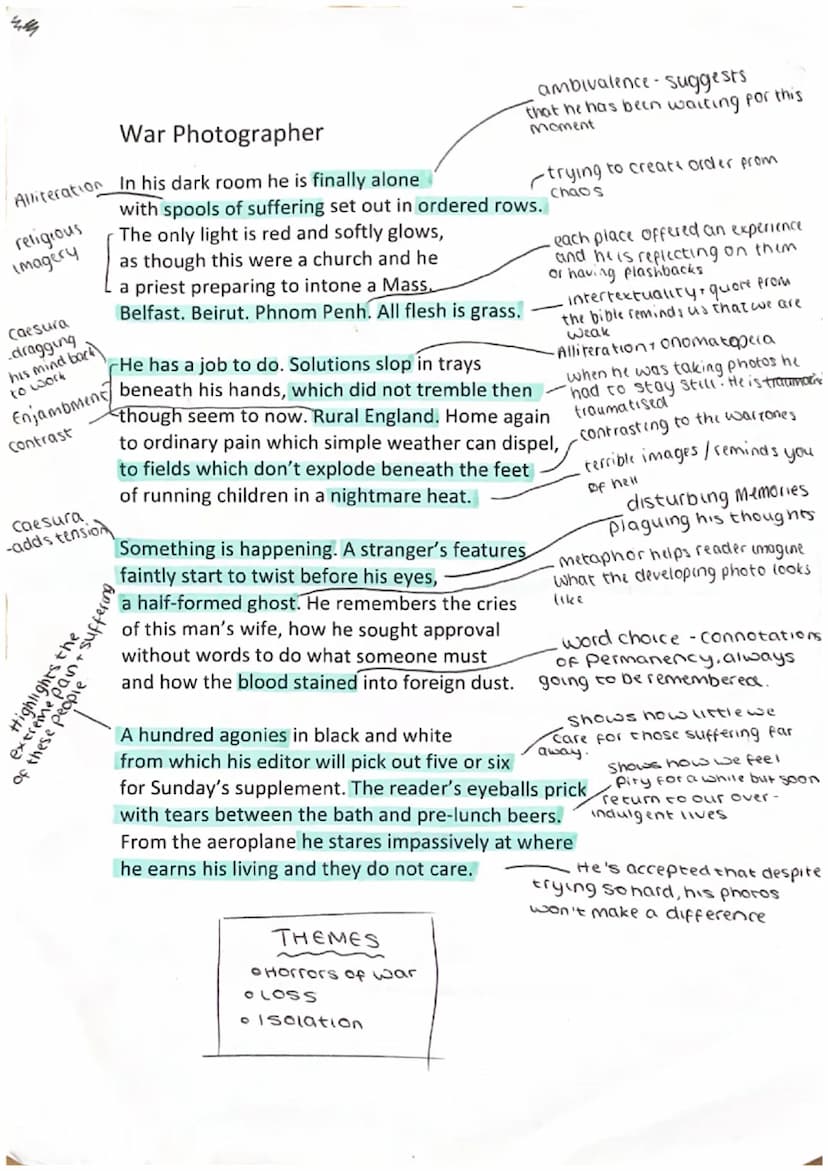 War Photographer
In his dark room he is finally alone
with spools of suffering set out in ordered rows.
The only light is red and softly glows,
as though this were a church and he
a priest preparing to intone a Mass.
Belfast. Beirut. Phnom Penh. All flesh is grass.
He has a job to do. Solutions slop in trays
beneath his hands, which did not tremble then
though seem to now. Rural England. Home again
to ordinary pain which simple weather can dispel,
to fields which don’t explode beneath the feet
of running children in a nightmare heat.
Something is happening. A stranger’s features
faintly start to twist before his eyes,
a half-formed ghost. He remembers the cries
of this man’s wife, how he sought approval
without words to do what someone must
and how the blood stained into foreign dust.
A hundred agonies in black and white
from which his editor will pick out five or six
for Sunday’s supplement. The reader’s eyeballs prick
with tears between the bath and pre-lunch beers.
From the aeroplane he stares impassively at where
he earns his living and they do not care.
Alliteration
religious
imagery
caesura
-dragging
his mind back
to work
Enjambment
contrast
Caesura
-adds tension
Highlights the
extreme pain + suffering
of these people.
ambivalence - suggests
that he has been waiting for this
moment
trying to create order from
chaos
each place offered an experience
and he is reflecting on them
or having flashbacks
intertextuality + quote from
the bible reminds us that we are
weak
Alliteration + onomatopeia
when he was taking photos he
had to stay still. He is
traumatised
contrasting to the warzones
terrible images / reminds you
of hell
disturbing memories
plaguing his thoughts
metaphor helps reader imagine
what the developing photo looks
like
word choice - connotations
of permanency. always
going to be remembered.
shows how little we
care for those suffering far
away.
shows how we feel
pity for a while but soon
return to our over-
indulgent lives
He's accepted that despite
trying so hard, his photos
won't make a difference
THEMES
Horrors of war
Loss
Isolation